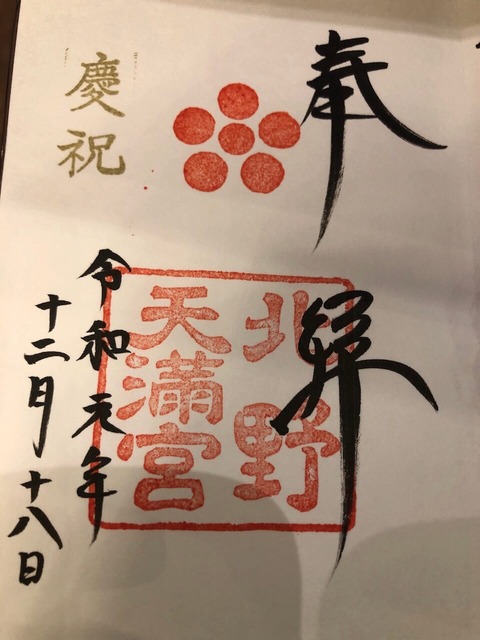 奉拝
北野
天満宮
慶祝
令和元年
十二月十八日